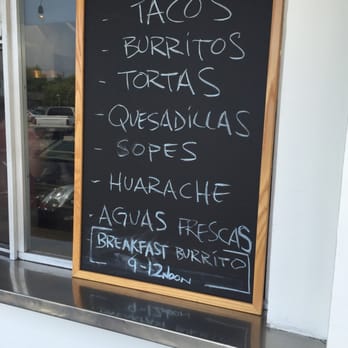 - TACOS
- BURRITOS
- TORTAS
- QUESADILLAS
- SOPES
- HUARACHE
- AGUAS FRESCAS
BREAKFAST BURRITO
9-12noon